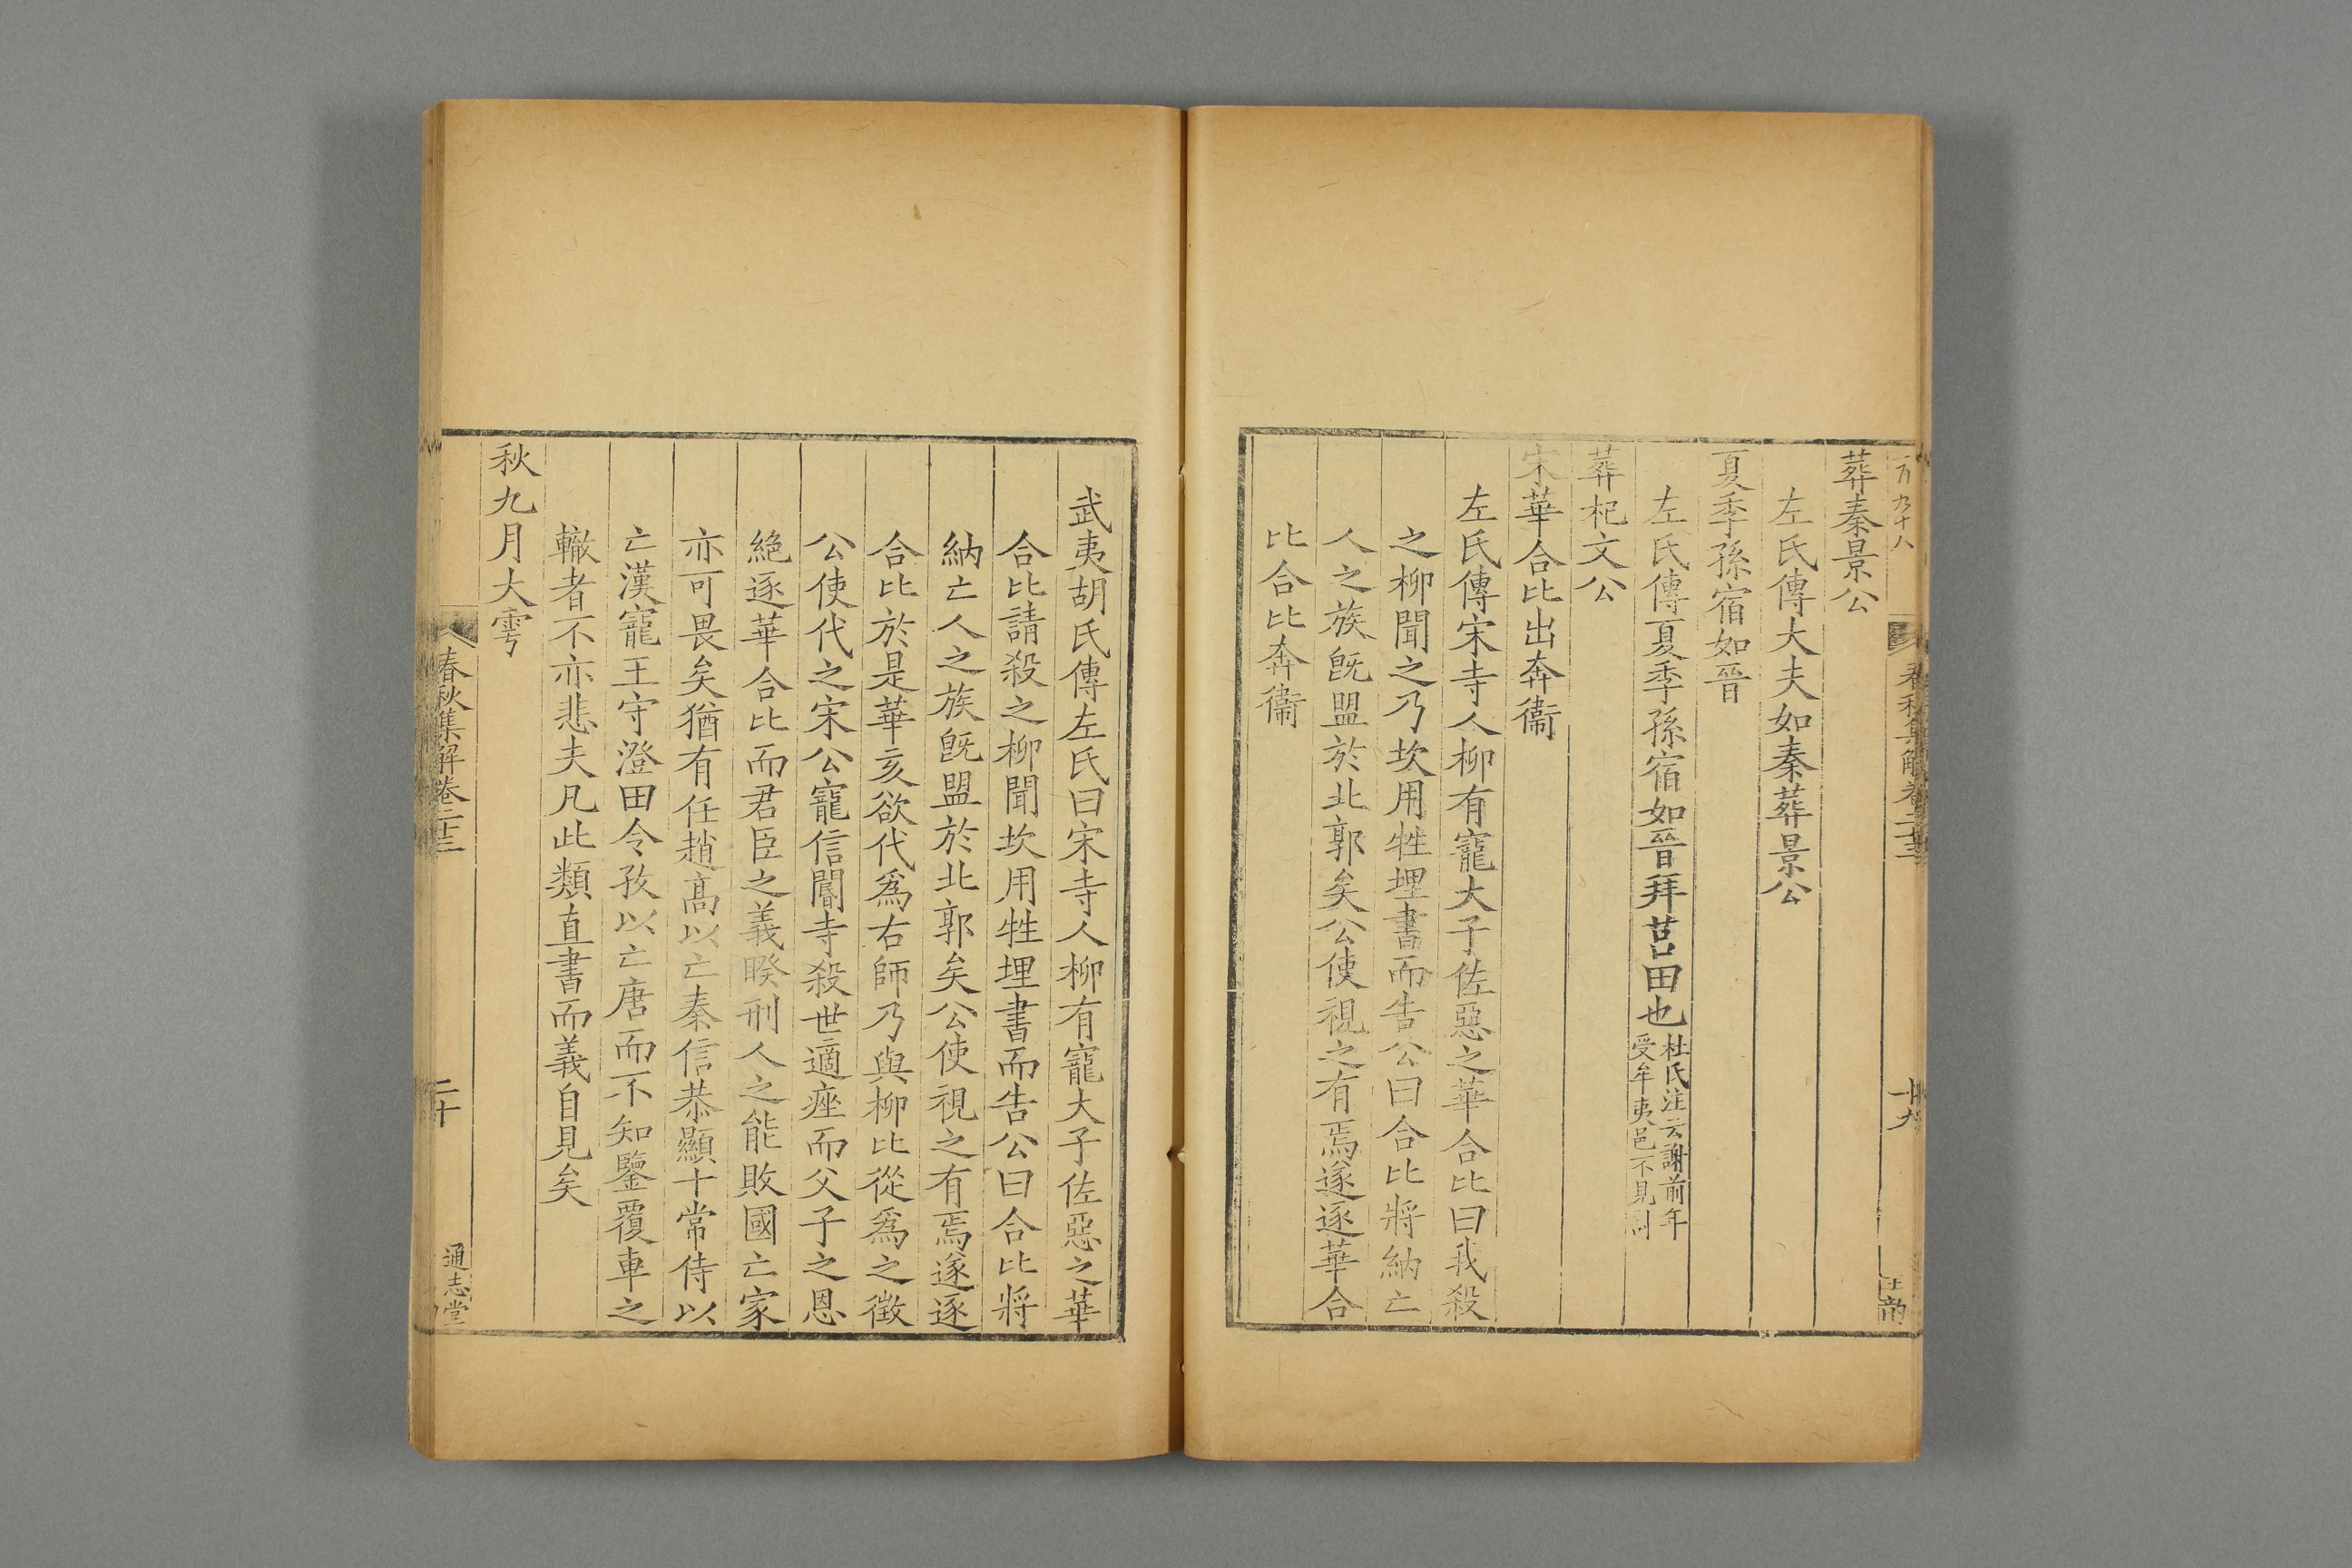 葬秦景公
左氏傳大夫如秦葬景公
夏季孫宿如晉
左氏傳夏季孫宿如晉拜莒田也杜氏注云謝前年
受牟夷邑不見討
葬杞文公
宋華合比出奔衞
左氏傳宋寺人柳有寵大子佐惡之華合比曰我殺
之柳聞之乃坎用牲埋書而告公曰合比將納亡
人之族旣盟於北郭矣公使視之有焉遂逐華合
比合比奔衞
武夷胡氏傳左氏曰宋寺人柳有寵大子佐惡之華
合比請殺之柳聞坎用牲埋書而告公曰合比將
納亡人之族旣盟於北郭矣公使視之有焉遂逐
合比於是華亥欲代爲右師乃與柳比從爲之徵
公使代之宋公寵信閽寺殺世適痤而父子之恩
絕逐華合比而君臣之義睽刑人之能敗國亡家
亦可畏矣猶有任趙高以亡秦信恭顯十常侍以
亡漢寵王守澄田令孜以亡唐而不知鑒覆車之
轍者不亦悲夫凡此類直書而義自見矣
秋九月大雩
春秋集解卷二十三
二十
通志堂